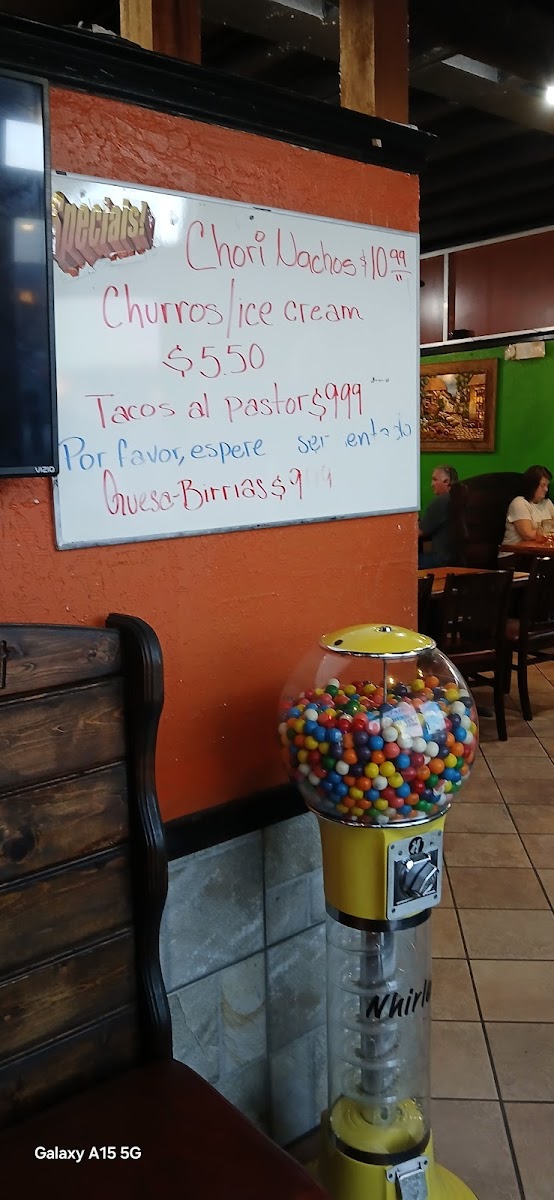 Specials!
Chori Nachos $10.99
Churros/ice cream
$5.50
Tacos al pastor $9.99
Por favor, espere ser entado
Queso-Birrias $9
VIZIO
Whirl
Galaxy A15 5G